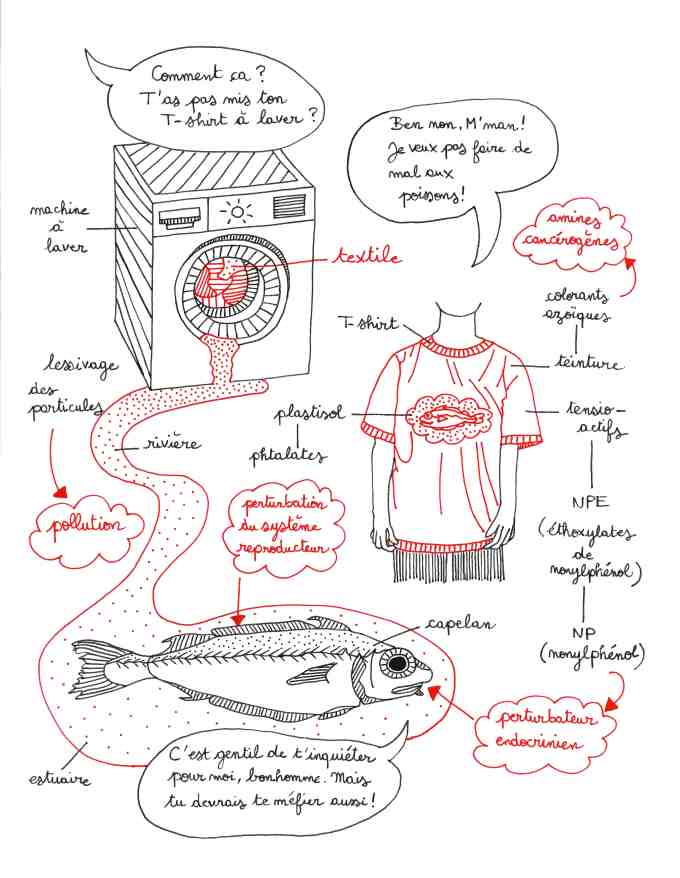 Comment ça ?
T'as pas mis ton
T-shirt à laver ?
Ben non, M'man !
Je veux pas faire de
mal aux
poissons !
machine
à
laver
textile
amines
cancérogènes
colorants
azoïques
T-shirt
teinture
lessivage
des
particules
plastisol
phtalates
tensio-
actifs
rivière
pollution
perturbation
du système
reproducteur
NPE
(éthoxylates
de
nonylphénol)
capelan
NP
(nonylphénol)
perturbateur
endocrinien
estuaire
C'est gentil de t'inquiéter
pour moi, bonhomme. Mais
tu devrais te méfier aussi !